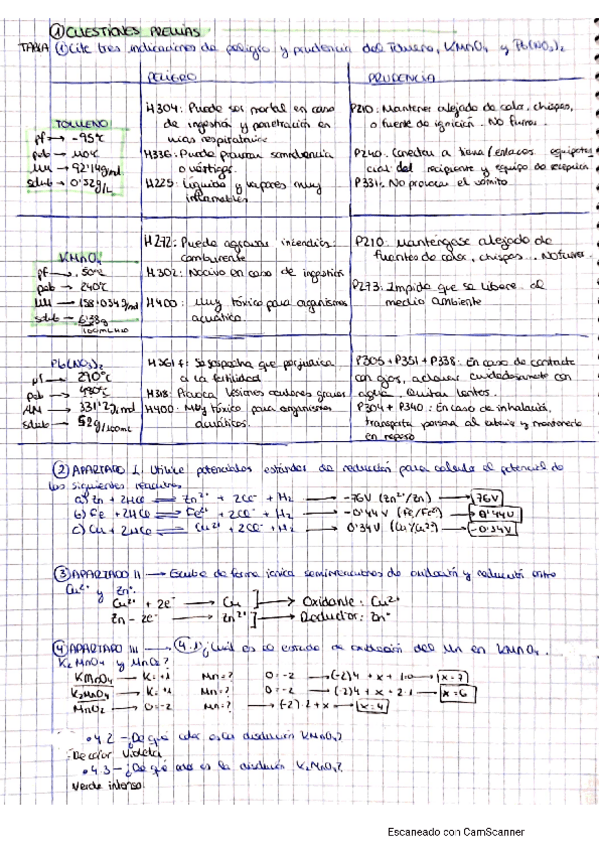 ① CUESTIONES PREVIAS
TABLA ① Cite tres indicaciones de peligro y prudencia del Tolueno, KMnO4 y Pb(NO3)2
PELIGRO
PRUDENCIA
TOLUENO
pf → -95ºC
peb → 110ºC
MM → 92'14g/mol
solub → 0'52g/L
H304: Puede ser mortal en caso
de ingestión y penetración en
vías respiratorias
H336: Puede provocar somnolencia
o vértigos.
H225: Líquidos y vapores muy
inflamables
P210: Mantener alejado de calor, chispas,
o fuente de ignición. NO fumar.
P240: Conectar a tierra/enlace equipotencial
del recipiente y equipo de recepción
P331: No provocar el vómito
KMnO4
peb → 240ºC
MM → 158'034g/mol
solub → 6'38g/100mL H2O
H272: Puede agravar incendios:
comburente
H302: Nocivo en caso de ingestión
H400: Muy tóxico para organismos
acuático.
P210: Manténgase alejado de
fuentes de calor, chispas... No fumar.
P273: Impida que se libere al
medio ambiente
Pb(NO3)2
pf → 270ºC
MM → 331'2g/mol
Solub → 52g/100mL
H361f: Se sospecha que perjudica
a la fertilidad
H318: Provoca lesiones oculares graves
H400: Muy tóxico para organismos
acuáticos.
P305+P351+P338: En caso de contacto
con ojos, aclarar cuidadosamente con
agua. Quitar lentes.
P304+P340: En caso de inhalación,
transporta persona al exterior y mantenerlo
en reposo
② APARTADO I. Utilice potenciales estándar de reducción para calcular el potencial de
las siguientes reacciones
a) Zn + 2HCl ⇌ Zn2+ + 2Cl- + H2 → -76V (Zn2+/Zn) → 76V
b) Fe + 2HCl ⇌ Fe2+ + 2Cl- + H2 → -0'44V (Fe/Fe2+) → 0'44V
c) Cu + 2HCl ⇌ Cu2+ + 2Cl- + H2 → 0'34V (Cu/Cu2+) → -0'34V
③ APARTADO II → Escribe de forma iónica semirreacciones de oxidación y reducción entre
Cu2+ y Zn.
Cu2+ + 2e- → Cu → Oxidante: Cu2+
Zn - 2e- → Zn2+ → Reductor: Zn
④ APARTADO III → 4.1 ¿Cuál es el estado de oxidación del Mn en KMnO4,
K2MnO4 y MnO2?
KMnO4 → K=+1 Mn=? O=-2 → (-2)4 + x + 1=0 → x=7
K2MnO4 → K=+1 Mn=? O=-2 → (-2)4 + x + 2·1 → x=6
MnO2 → O=-2 Mn=? → (-2)·2+x → x=4
• 4.2 - ¿De qué color es la disolución KMnO4?
De color violeta
• 4.3 - ¿De qué color es la disolución K2MnO4?
Verde intenso
Escaneado con CamScanner